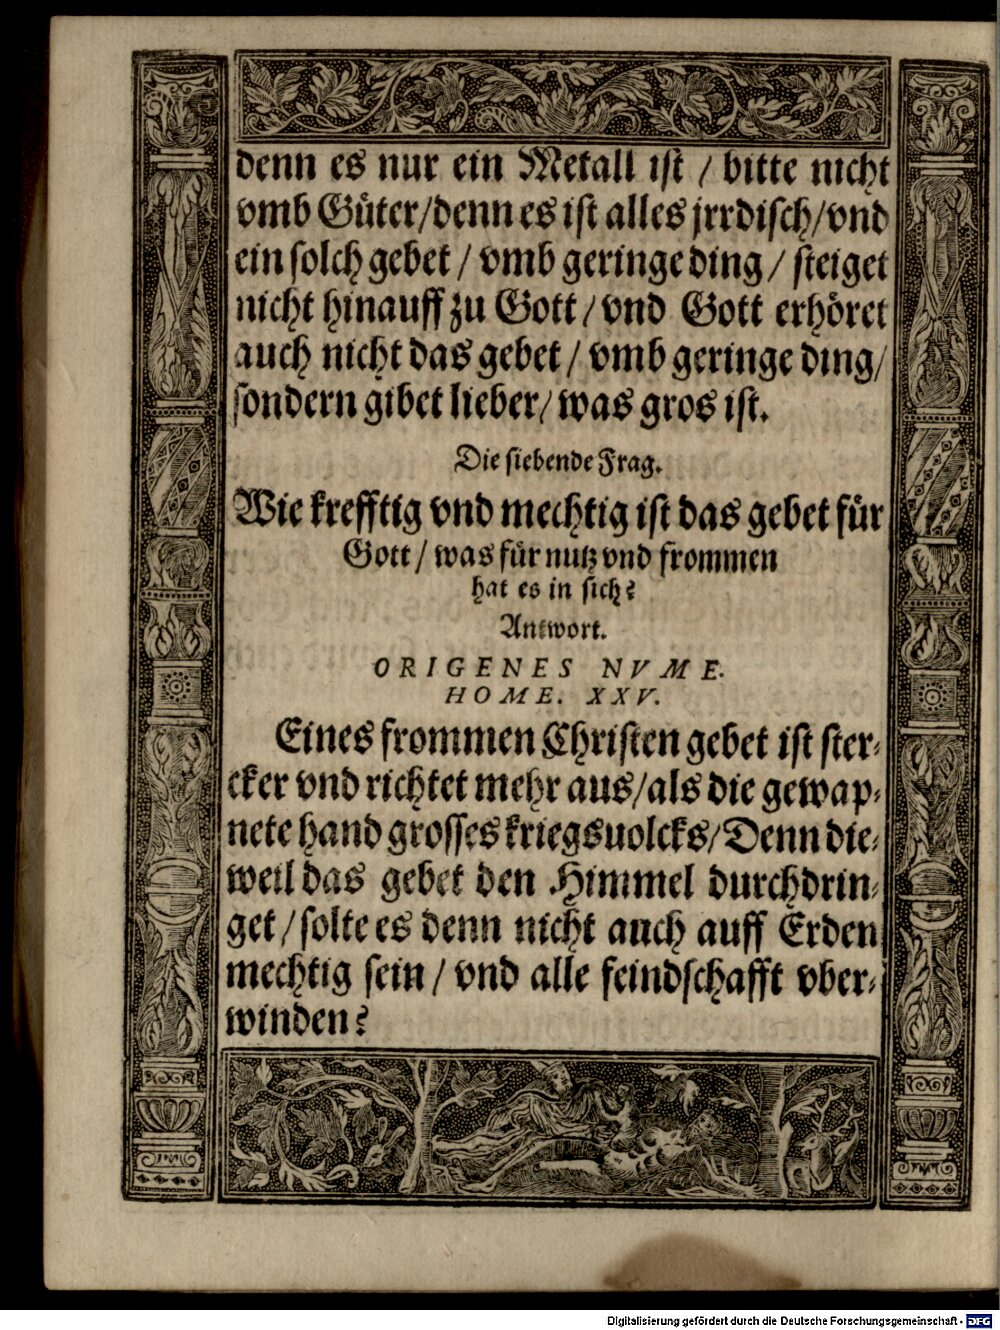 denn es nur ein Metall ist / bitte nicht
vmb Güter/denn es ist alles jrrdisch/vnd
ein solch gebet / vmb geringe ding / steiget
nicht hinauff zu Gott / vnd Gott erhöret
auch nicht das gebet / vmb geringe ding/
sondern gibet lieber/ was gros ist.
Die siebende Frag.
Wie krefftig vnd mechtig ist das gebet für
Gott / was für nutz vnd frommen
hat es in sich?
Antwort.
ORIGENES NVME.
HOME. XXV.
Eines frommen Christen gebet ist ster-
cker vnd richtet mehr aus/als die gewap-
nete hand grosses kriegsuolcks/Denn die-
weil das gebet den Himmel durchdrin-
get / solte es denn nicht auch auff Erden
mechtig sein / vnd alle feindschafft vber-
winden?
Digitalisierung gefördert durch die Deutsche Forschungsgemeinschaft - DFG